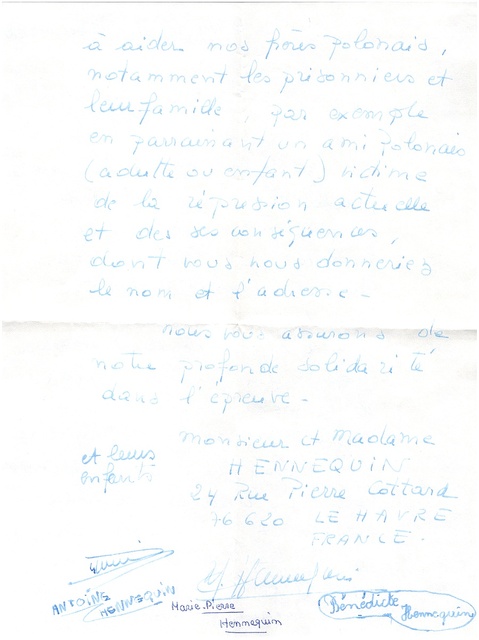 à aider nos frères polonais,
notamment les prisonniers et
leur famille, par exemple
en parrainant un ami polonais
(adulte ou enfant) victime
de la répression actuelle
et des ses conséquences,
dont vous nous donneriez
le nom et l'adresse -
nous vous assurons de
notre profonde solidarité
dans l'épreuve -
Monsieur et Madame
et leurs
HENNEQUIN
enfants
24 Rue Pierre Cottard
76620 LE HAVRE
FRANCE.
ANTOINE
HENNEQUIN
Marie-Pierre
Hennequin
Bénédicte
Hennequin